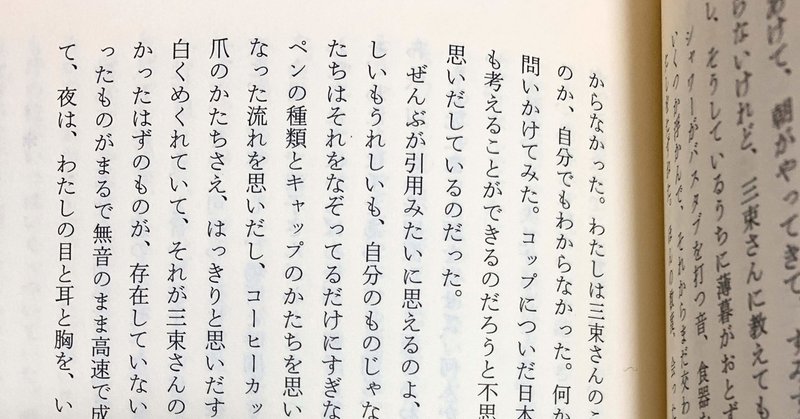 あけて、朝がやってきて、
らないけれど、三束さんに教えても
し、そうしているうちに薄暮がおとず
シャワーがバスタブを打つ音、食器
いくつか浮かんで、それからまだ交わ
からなかった。わたしは三束さんの
のか、自分でもわからなかった。何か
問いかけてみた。コップについだ日本
も考えることができるのだろうと不思
思いだしているのだった。
ぜんぶが引用みたいに思えるのよ、
しいもうれしいも、自分のものじゃな
たちはそれをなぞってるだけにすぎな
ペンの種類とキャップのかたちを思い
なった流れを思いだし、コーヒーカッ
爪のかたちさえ、はっきりと思いだす
白くめくれていて、それが三束さんの
かったはずのものが、存在していない
ったものがまるで無音のまま高速で成
て、夜は、わたしの目と耳と胸を、い